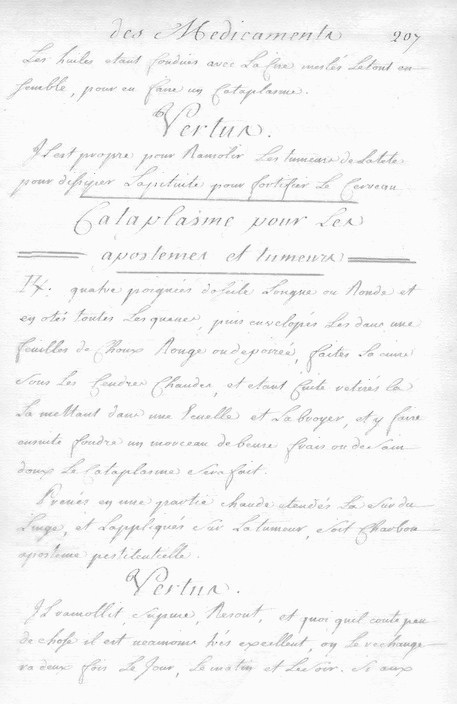 des Medicaments 207
Les huiles etant fondues avec La Cire meslés Letout en-
semble, pour en faire un Cataplasme.
Vertus.
Il est propre pour Ramolir Les tumeurs de La tete
pour dissiper La pituite pour fortifier Le Cerveau
Cataplasme pour Les
apostemes et tumeurs
quatre poignées doseile Longue ou Ronde et
en otés toutes Les queues, puis envelopés Les dans une
feuilles de Choux Rouge ou de poirée, faites La cuire
sous Les Cendres Chaudes, et etant Cuite retirés La
La mettant dans une Ecuelle et La broyer, et y faire
ensuite fondre un morceau de beure frais ou de sain
doux Le Cataplasme sera fait.
Prenés en une partie chaude etendés La sur du
Linge, et L'appliqués sur La tumeur, soit Charbon
aposteme pestilentielle.
Vertus.
Il ramollit, Resout, et quoi quel coute peu
de chose il est neamoins trés excellent, on Le rechange-
ra deux fois Le Jour, Le matin et Le soir. Si aux